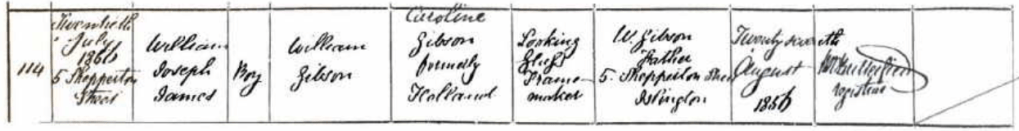 114
Twentieth
July
1856
5 Shepperton
Street
William
Joseph
James
Boy
William
Gibson
Caroline
Gibson
formerly
Holland
Looking
Glass
Frame
maker
W. Gibson
Father
5. Shepperton Street
Islington
Twenty seventh
August
1856
registrar